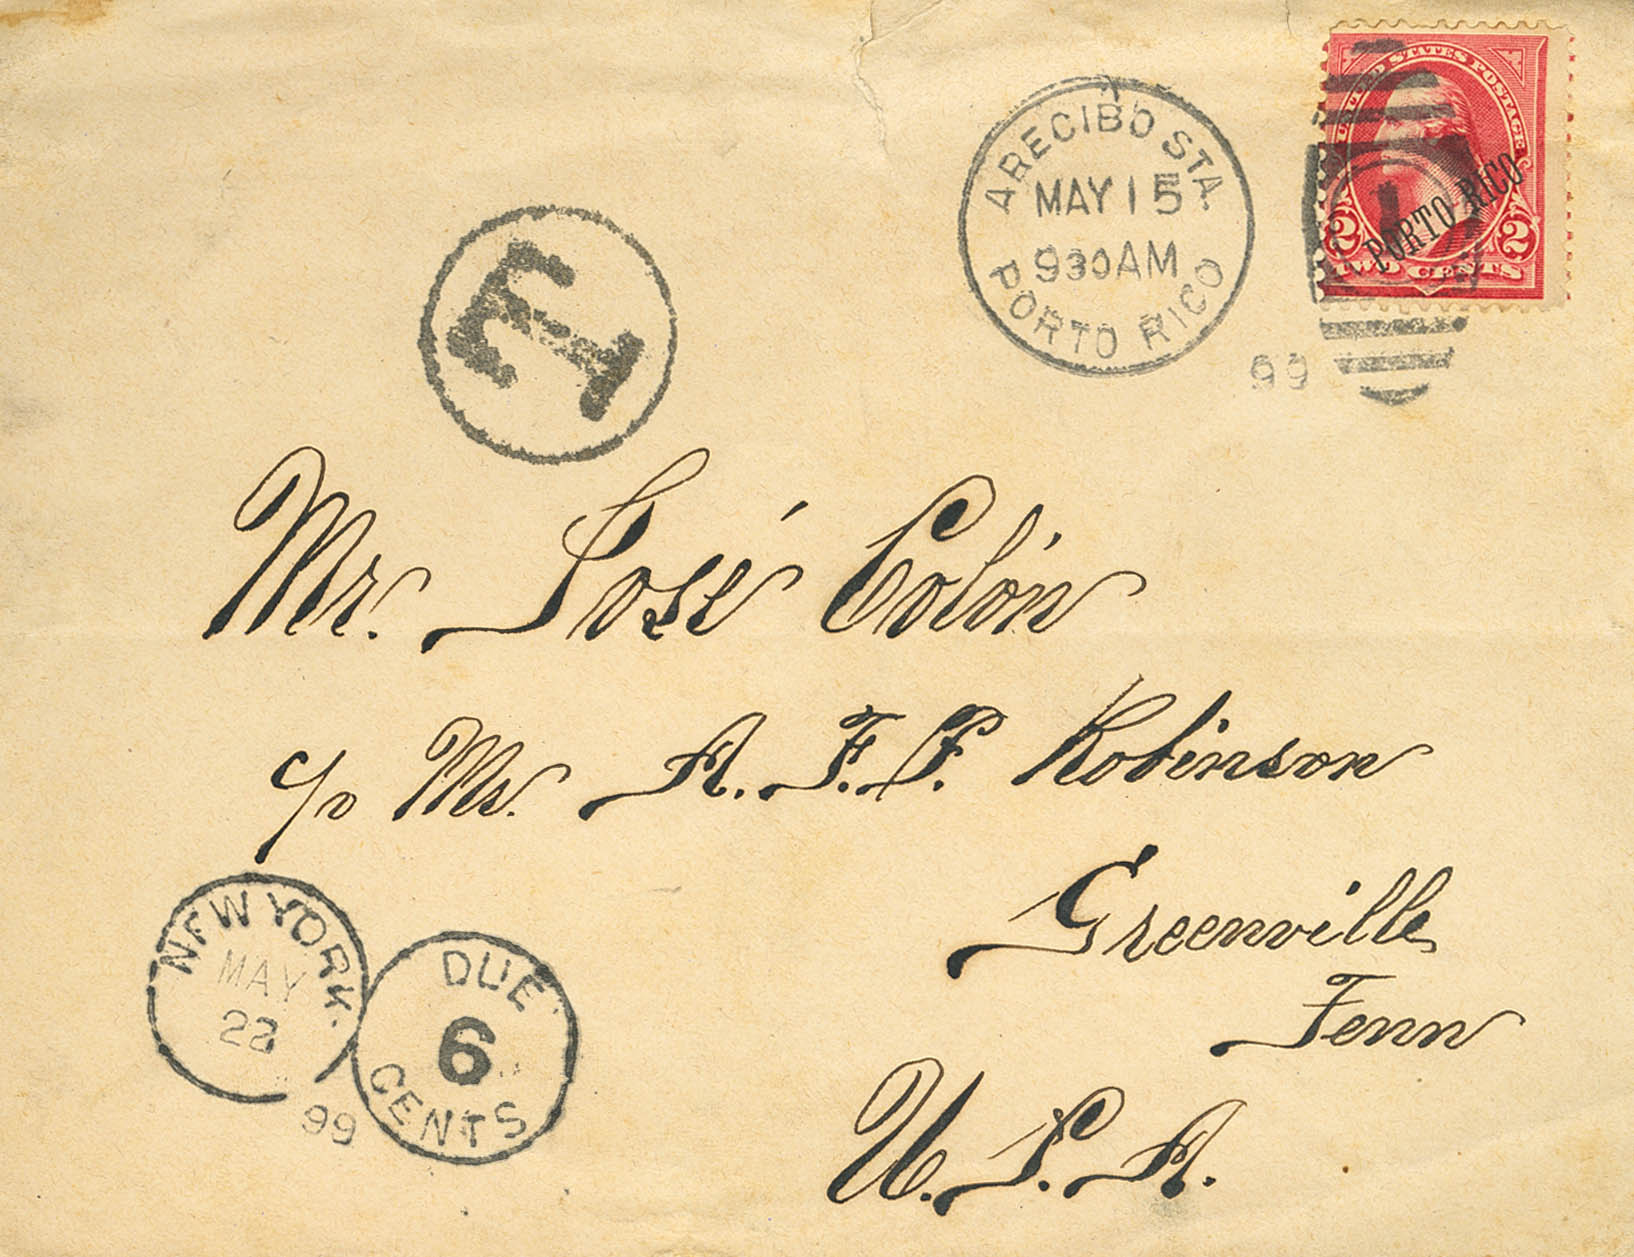 UNITED STATES POSTAGE
PORTO RICO
2 2
TWO CENTS
ARECIBO STA.
MAY 15
930AM
PORTO RICO
99
1
T
Mr. José Colón
c/o Ms. A. F. P. Robinson
Greenville
Tenn
U. S. A.
NEW YORK.
MAY
22
99
DUE
6
CENTS